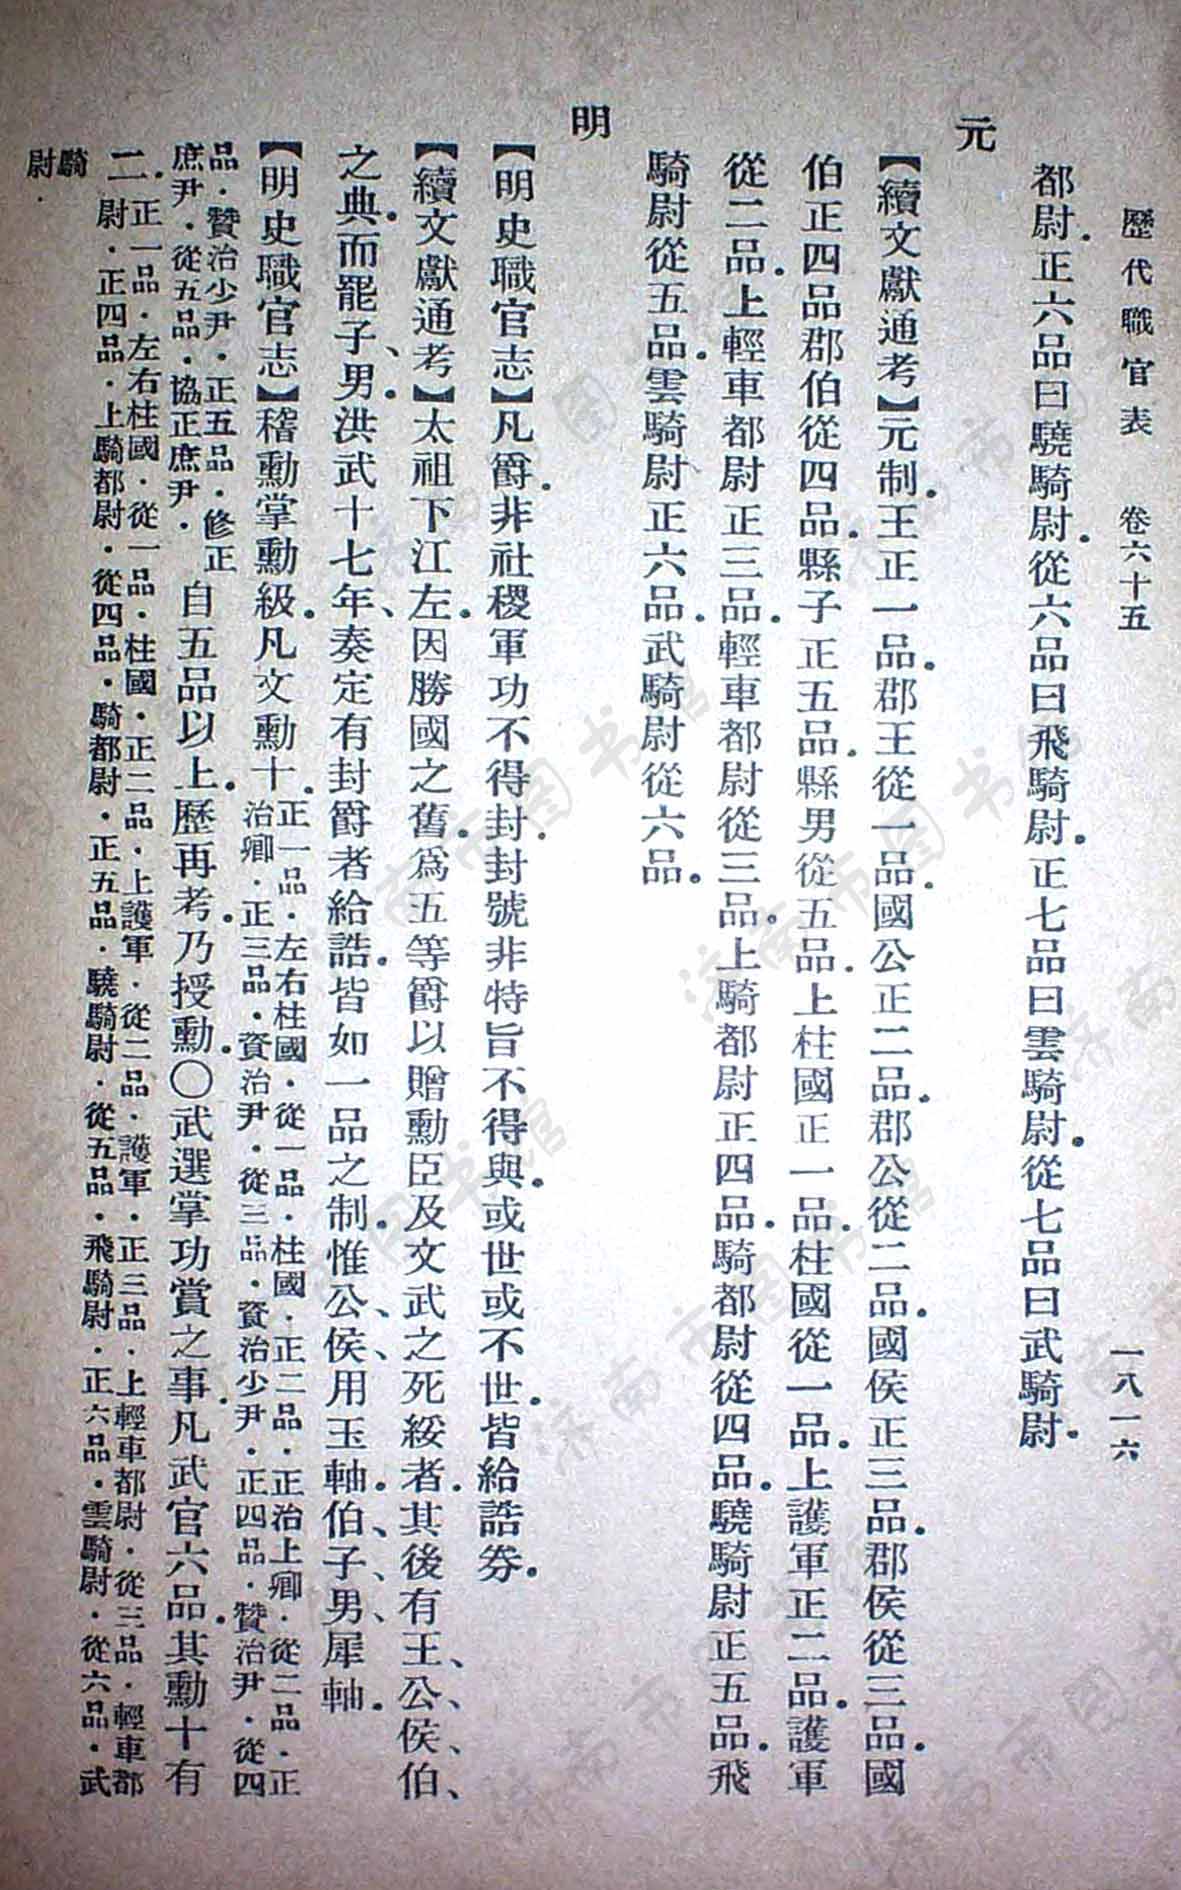 歷代職官表　卷六十五　一八一六
都尉.正六品曰驍騎尉.從六品曰飛騎尉.正七品曰雲騎尉.從七品曰武騎尉.
元
【續文獻通考】元制.王正一品.郡王從一品.國公正二品.郡公從二品.國侯正三品.郡侯從三品.國
伯正四品郡伯從四品.縣子正五品.縣男從五品.上柱國正一品.柱國從一品.上護軍正二品.護軍
從二品.上輕車都尉正三品.輕車都尉從三品.上騎都尉正四品.騎都尉從四品.驍騎尉正五品.飛
騎尉從五品.雲騎尉正六品.武騎尉從六品.
明
【明史職官志】凡爵.非社稷軍功不得封.封號非特旨不得與.或世或不世.皆給誥券.
【續文獻通考】太祖下江左.因勝國之舊.爲五等爵以贈勳臣及文武之死綏者.其後有王、公、侯、伯、
之典.而罷子、男.洪武十七年、奏定有封爵者給誥.皆如一品之制.惟公、侯、用玉軸.伯、子、男、犀軸.
【明史職官志】稽勳掌勳級.凡文勳十.
正一品.左右柱國.從一品.柱國.正二品.正治上卿.從二品.正
治卿.正三品.資治尹.從三品.資治少尹.正四品.贊治尹.從四
品.贊治少尹.正五品.修正
庶尹.從五品.協正庶尹.
自五品以上.歷再考.乃授勳.〇武選掌功賞之事.凡武官六品.其勳十有
二.
正一品.左右柱國.從一品.柱國.正二品.上護軍.從二品.護軍.正三品.上輕車都尉.從三品.輕車都
尉.正四品.上騎都尉.從四品.騎都尉.正五品.驍騎尉.從五品.飛騎尉.正六品.雲騎尉.從六品.武
騎
尉.
济南市图书馆